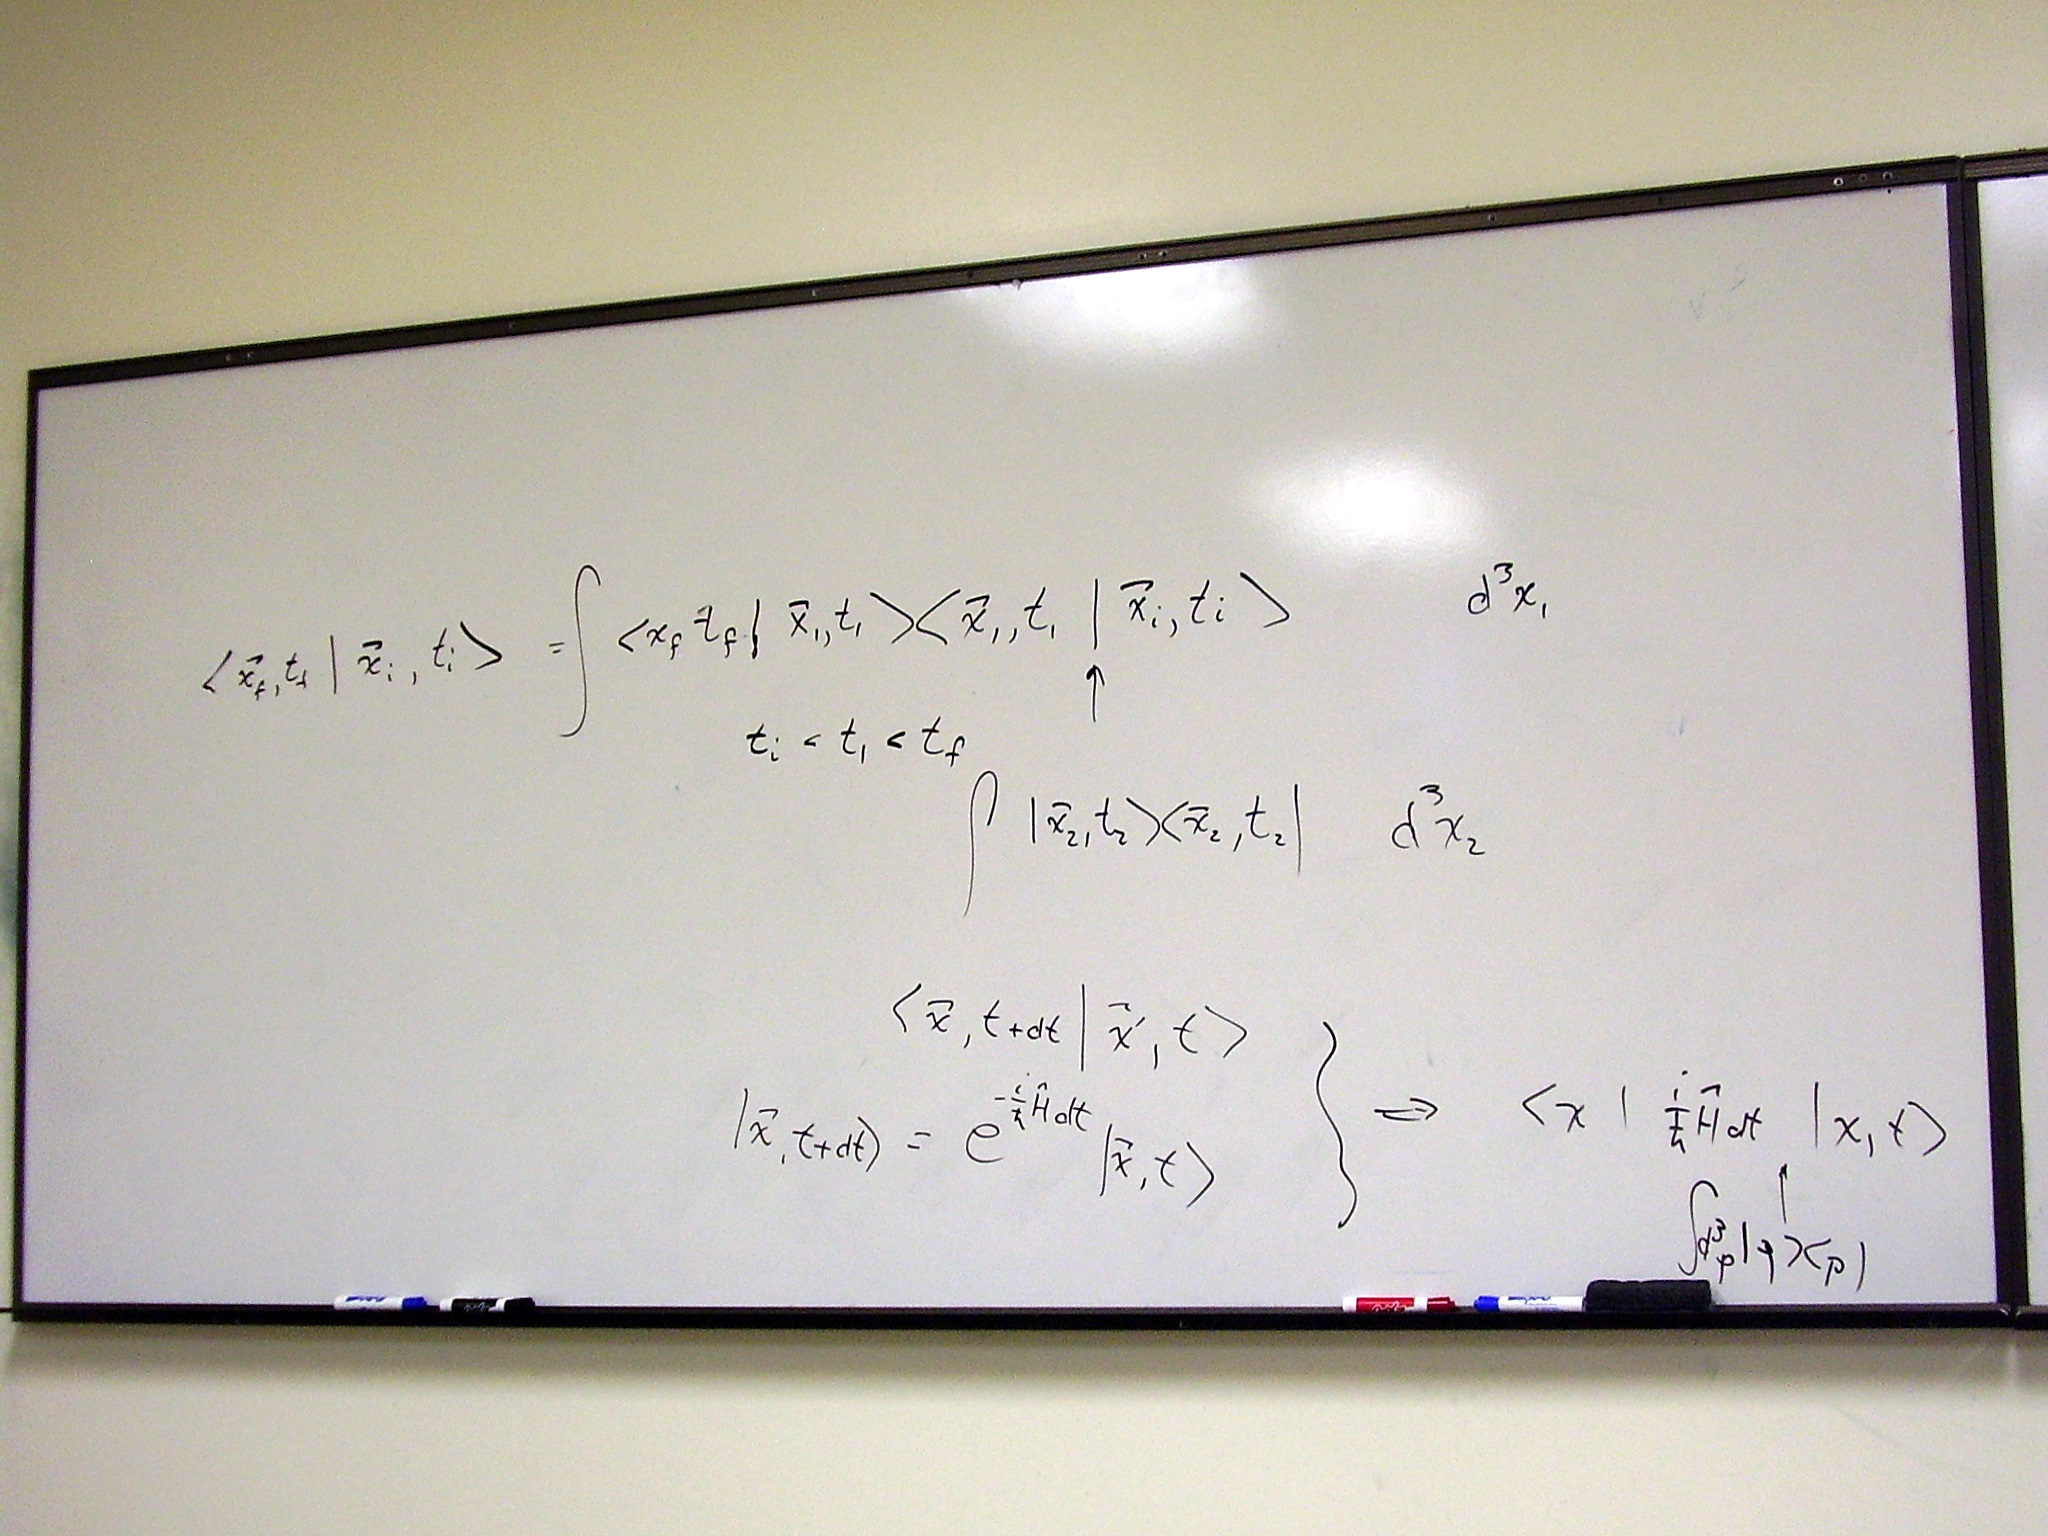 ⟨x⃗_f, t_f | x⃗_i, t_i⟩ = ∫ ⟨x_f t_f | x⃗_1, t_1⟩⟨x⃗_1, t_1 | x⃗_i, t_i⟩ d³x_1
↑
t_i < t_1 < t_f
∫ |x⃗_2, t_2⟩⟨x⃗_2, t_2| d³x_2
⟨x⃗, t+dt | x⃗′, t⟩
|x⃗, t+dt⟩ = e^{-i/ħ Ĥ dt} |x⃗, t⟩ } ⇒ ⟨x | i/ħ Ĥ dt | x, t⟩
↑
∫d³p |p⟩⟨p|